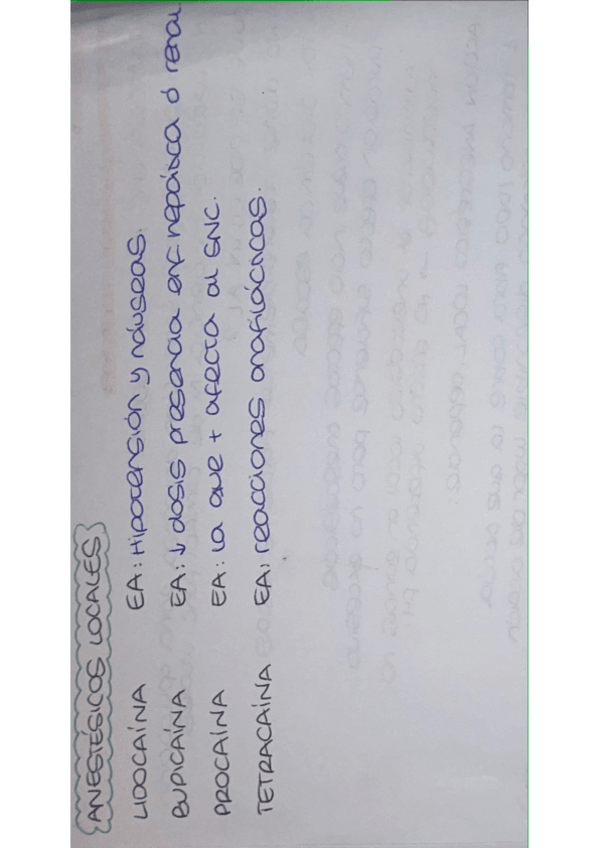 ANESTÉSICOS LOCALES
LIDOCAÍNA EA: Hipotensión y náuseas.
BUPICAÍNA EA: ↓ dosis presencia enf hepática ó renal.
PROCAÍNA EA: La que + afecta al SNC.
TETRACAÍNA EA: reacciones anafilácticas.